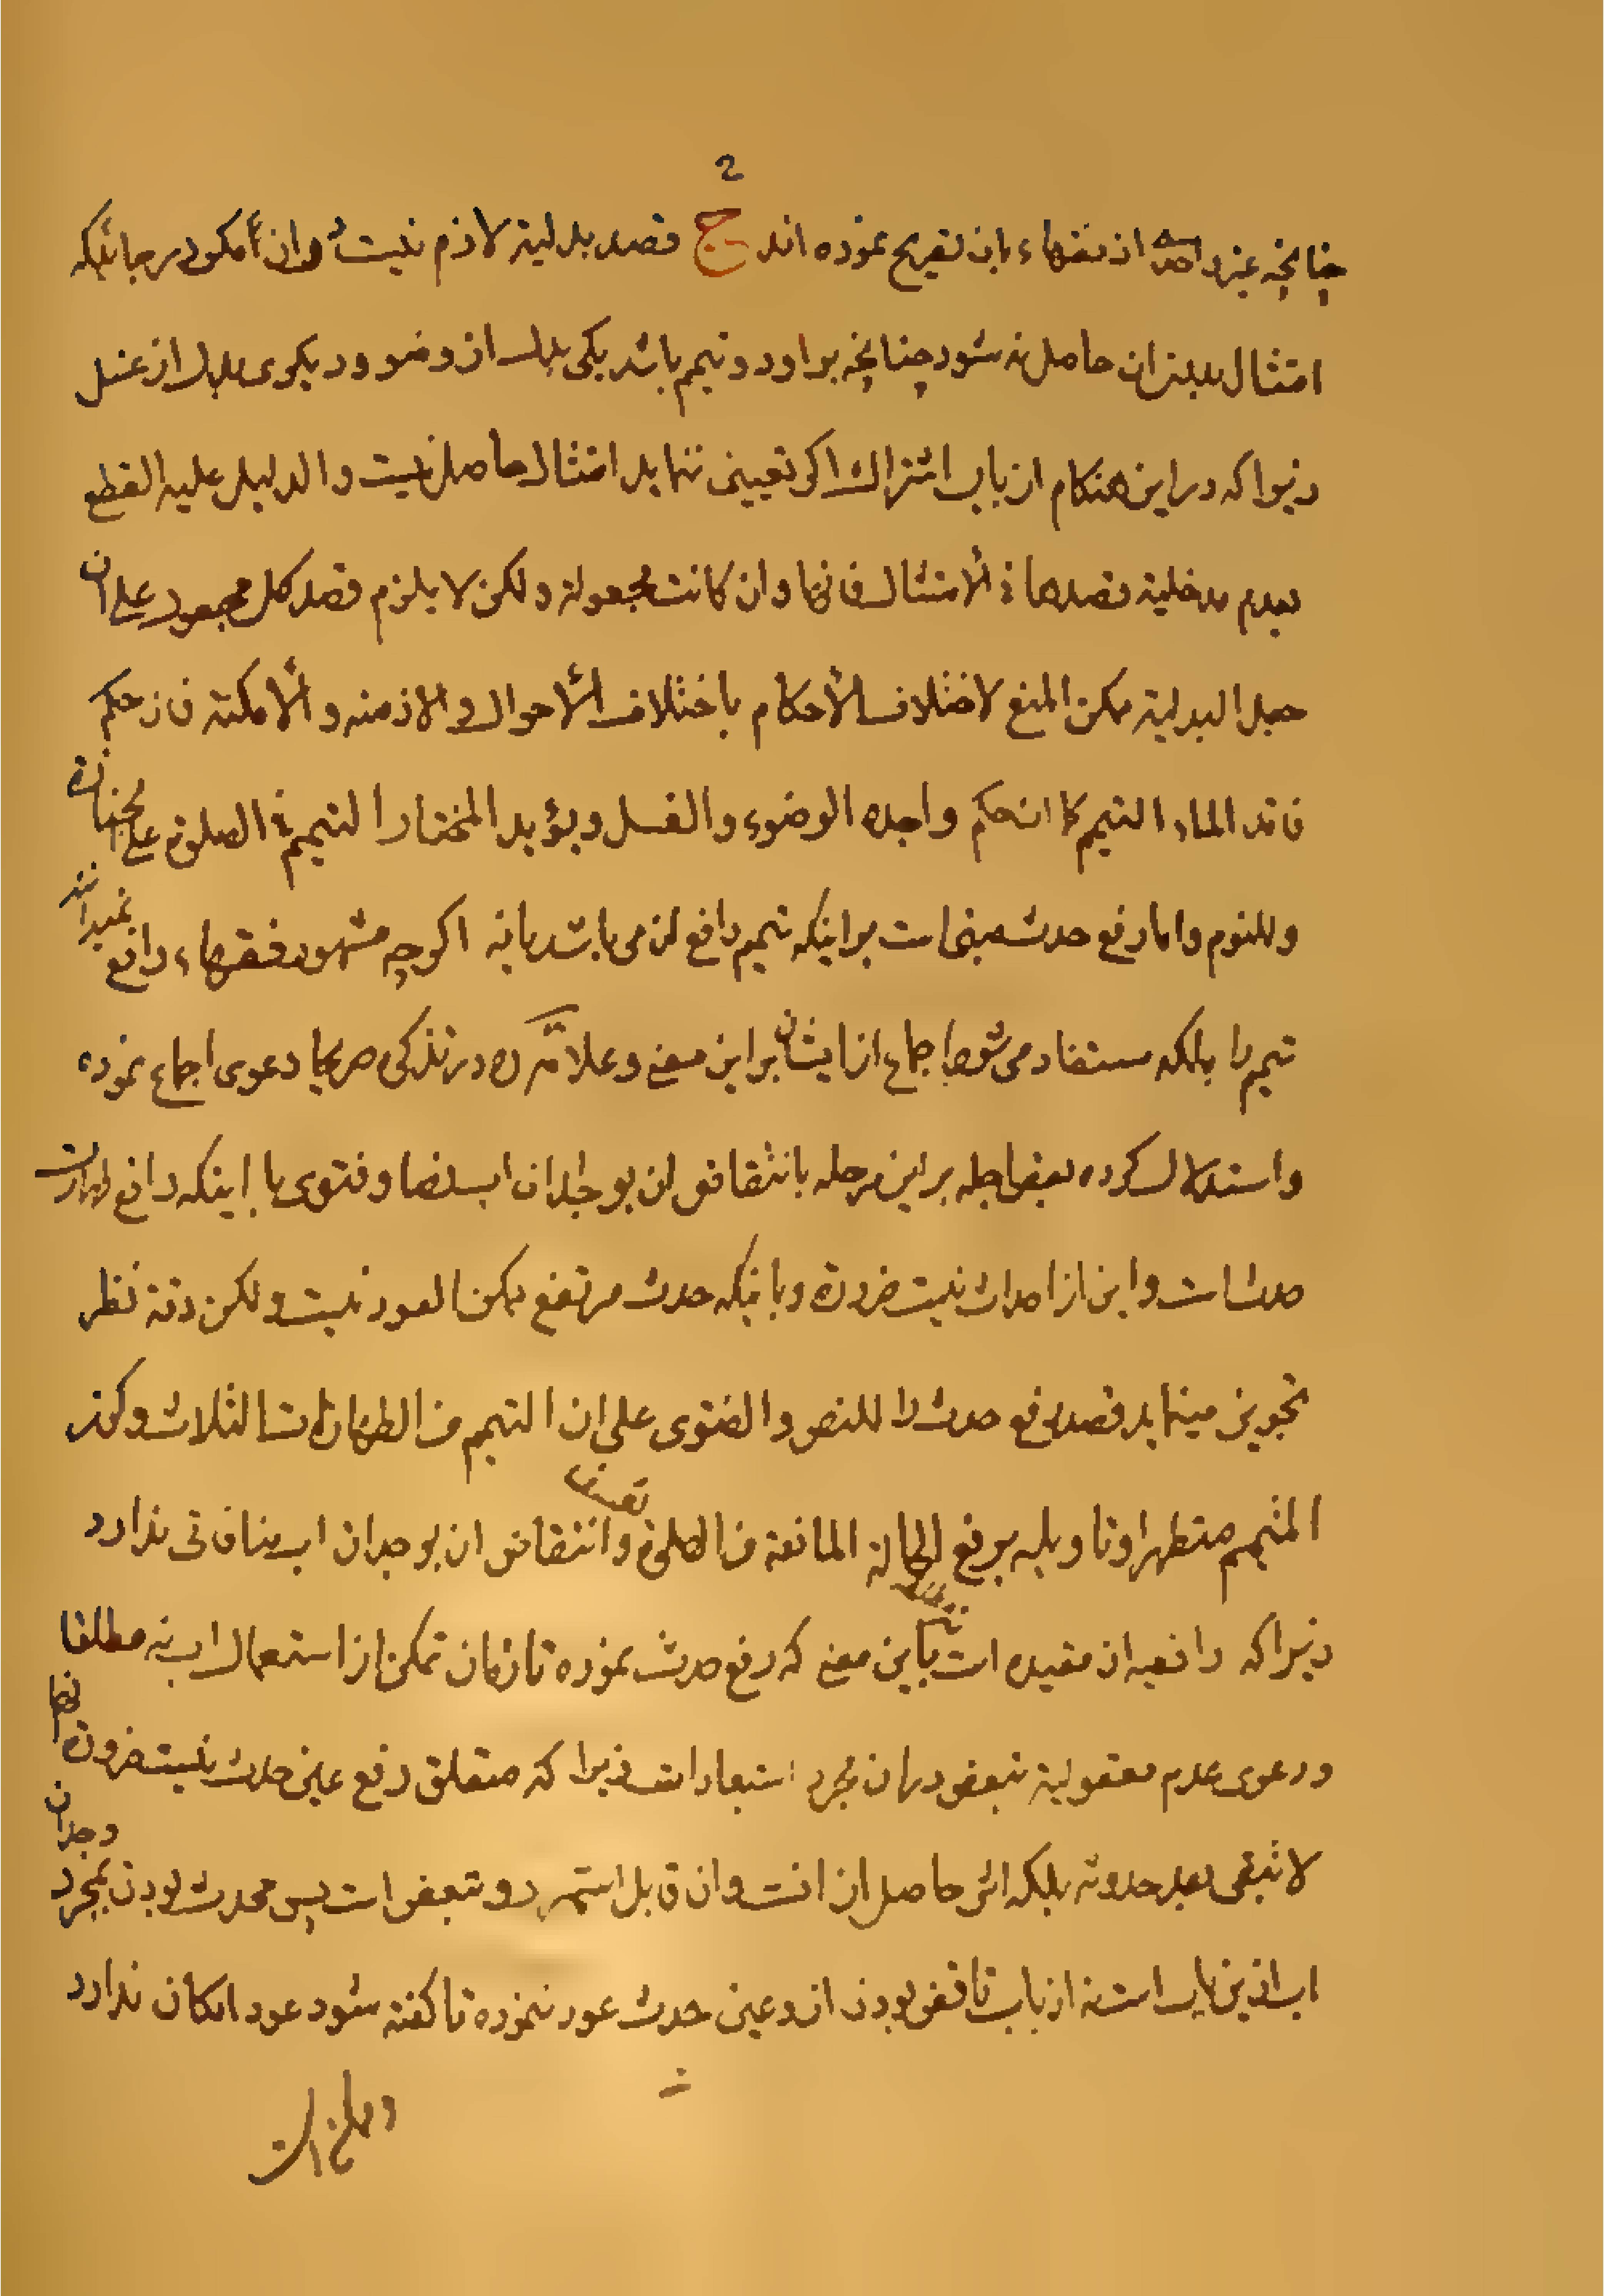 2
چنانچه غیر واحد از فقهاء بان تصریح نموده اند ج قصد بدلیة لازم نیست در ان مگر در جائیکه
امتثال بدون ان حاصل نه شود چنانچه بر او دو تیمم باشد یکی بدل از وضو و دیگری بدل از غسل
زیرا که در این هنگام از باب اشتراک اگر تعیین ننماید امتثال حاصل نیست و الدلیل علیه القطع
بعدم مدخلیة قصدها فی الأمتثال فانها وان کانت مجعولة ولکن لا یلزم قصد کل مجعول علی ان
جعل البدلیة ممکن المنع لاختلاف الأحکام باختلاف الأحوال و الازمنه و الأمکنه فان حکم
فاقد الماء التیمم کما ان حکم واجده الوضوء والغسل ویؤید المختار التیمم فی الصلوة علی الجنازة
وللنوم واما رفع حدث مبنی است بر اینکه تیمم رافع ان می باشد یا نه اگر چه مشهور فقهاء رافع نمیدانند
تیمم را بلکه مستفاد می شود اجماع از ایشان بر این معنی و علامه ره در تذکره صریحا دعوی اجماع نموده
واستدلال کرده بعض اجله بر این مرحله بانتقاض ان بوجدان اب نصا و فتوی با اینکه رافع طهارت
حدث است و این از احداث نیست ضرورة و باینکه حدث مرتفع ممکن العود نیست ولکن دقة نظر
تجویز مینماید قصد رفع حدث را للنص و الفتوی علی ان التیمم من الطهارات الثلاث و کون
المتیمم متطهرا وتاویله برفع الحالة المانعة من الصلوة تعسف وانتقاض ان بوجدان اب منافاتی ندارد
زیرا که رافعیه ان مقیده است باین معنی که رفع حدث نموده تا زمان تمکن از استعمال اب نه مطلقا
ودعوی عدم معقولیة تبعض در ان مجرد استبعاد است زیرا که متعلق رفع عین حدث نیست ضرورة انها
لا تبقی بعد حدوثه بلکه اثر حاصل از انست وان قابل استمرار و تبعض است پس محدث بودن بمجرد وجدان
اب از این باب است نه از باب ناقض بودن ان و عین حدث عود ننموده تا گفته شود عود امکان ندارد